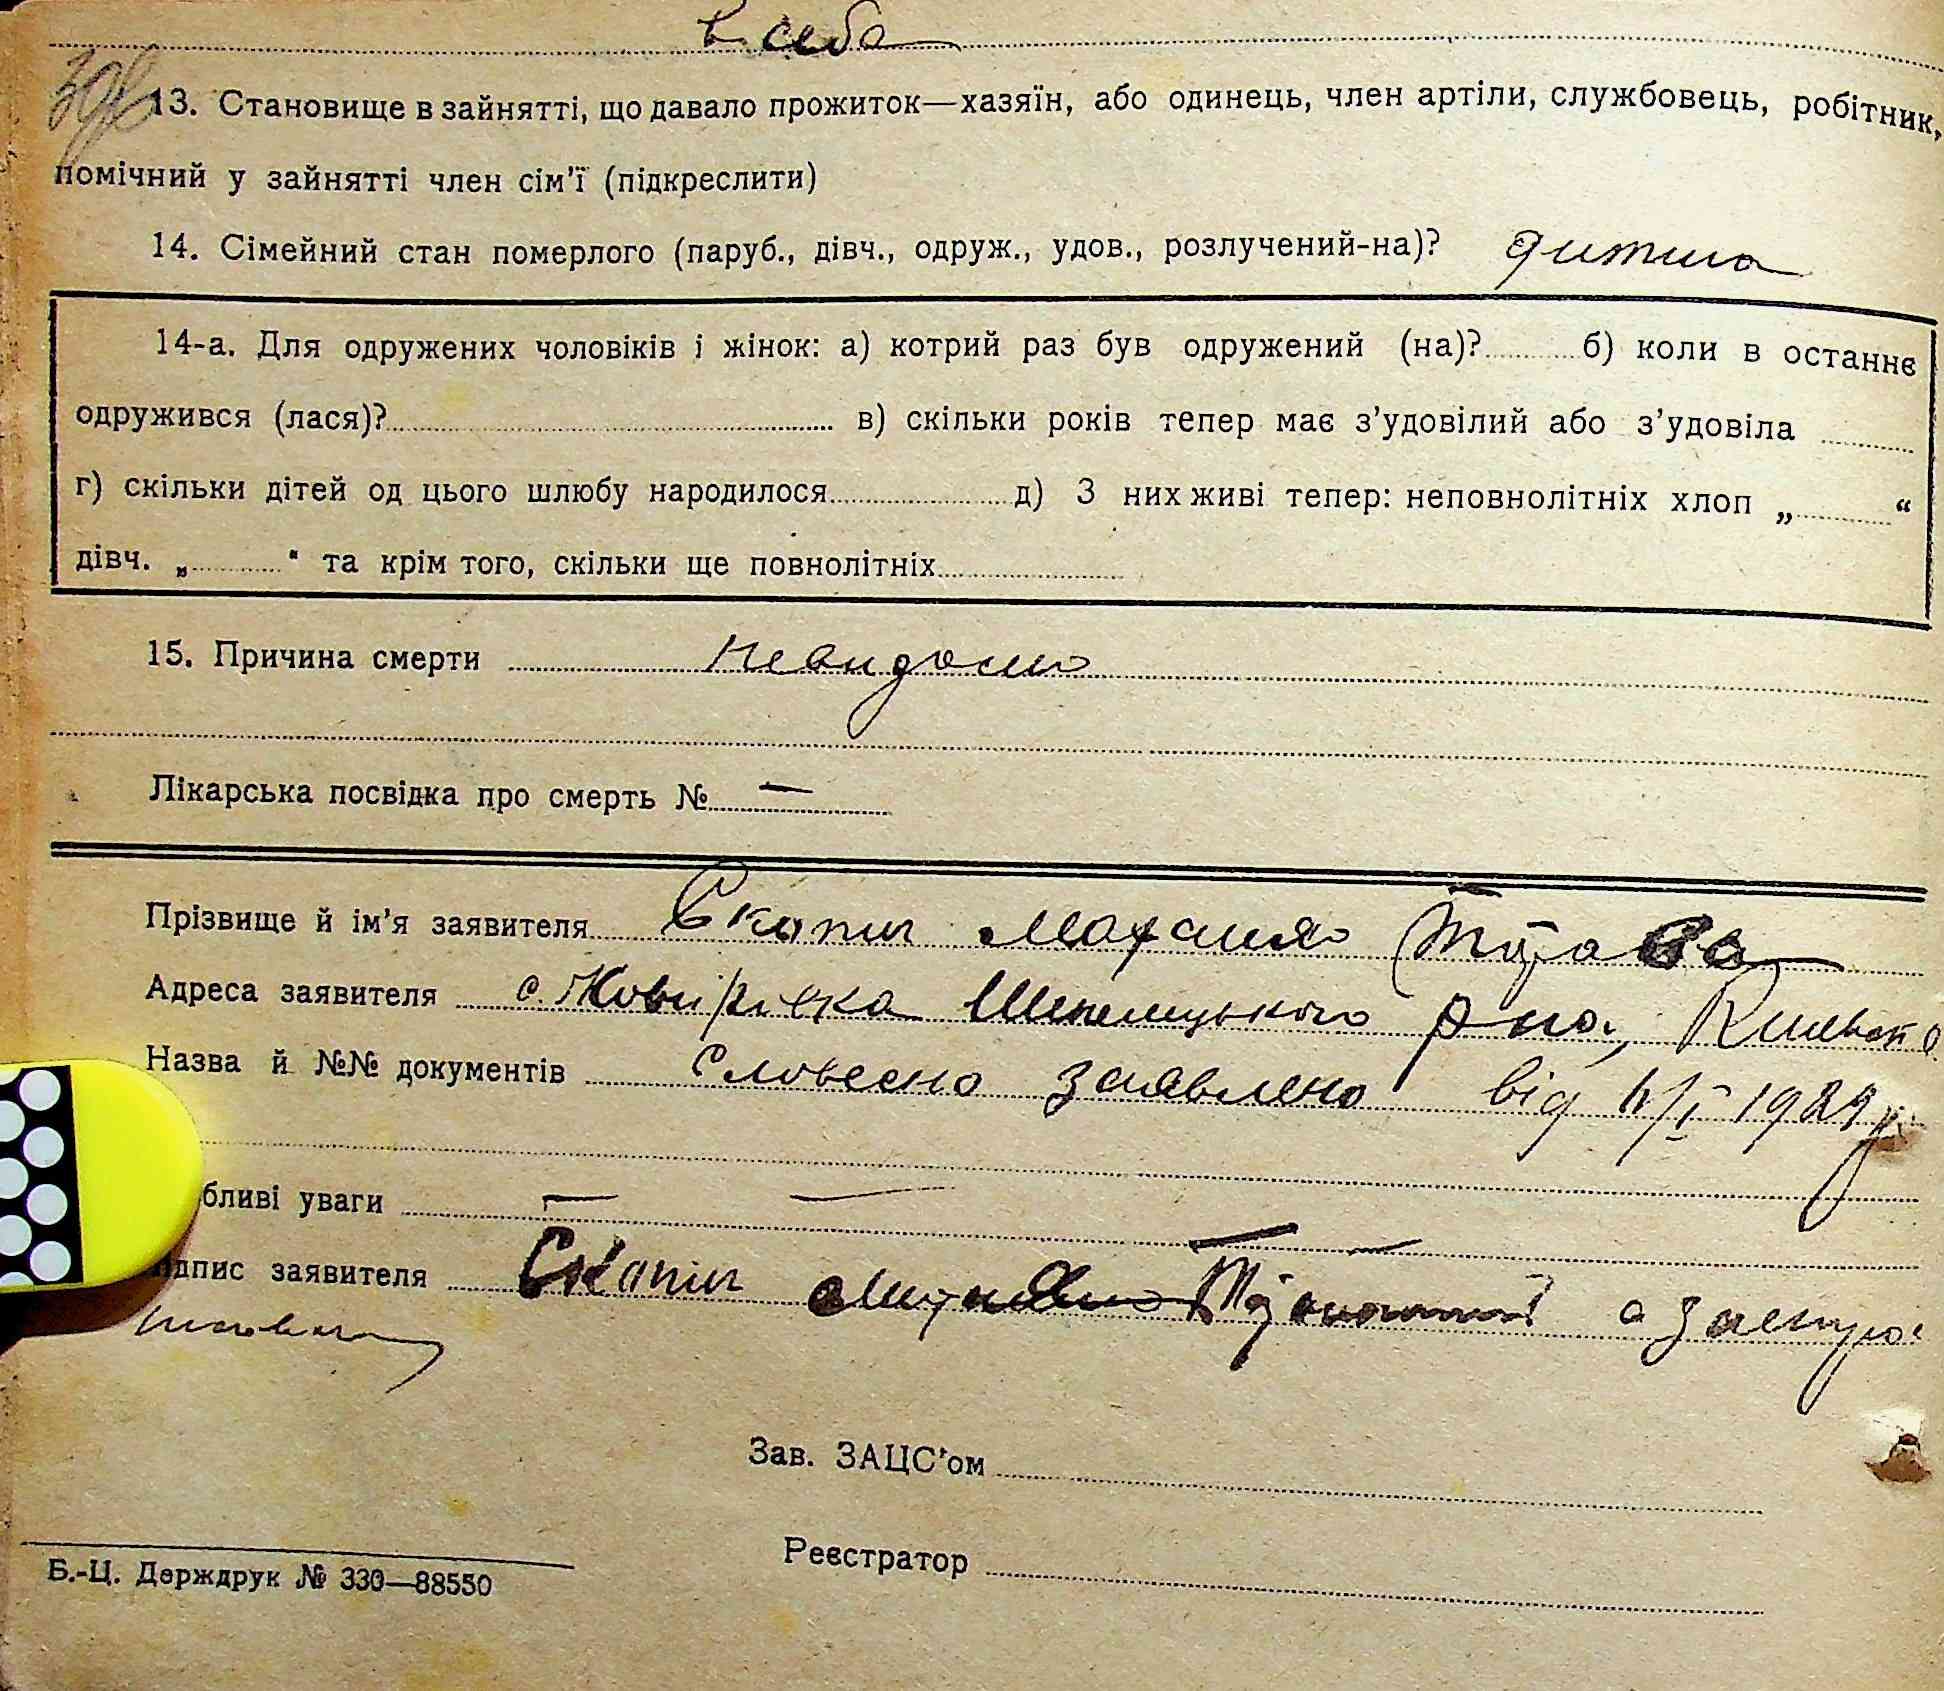 в себе
13. Становище в зайнятті, що давало прожиток—хазяїн, або одинець, член артіли, службовець, робітник,
помічний у зайнятті член сім'ї (підкреслити)
14. Сімейний стан померлого (паруб., дівч., одруж., удов., розлучений-на)? дитина
14-а. Для одружених чоловіків і жінок: а) котрий раз був одружений (на)? б) коли в останнє
одружився (лася)? в) скільки років тепер має з'удовілий або з'удовіла
г) скільки дітей од цього шлюбу народилося д) З них живі тепер: неповнолітніх хлоп „ “
дівч. „ “ та крім того, скільки ще повнолітніх
15. Причина смерти невидомо
Лікарська посвідка про смерть № —
Прізвище й ім'я заявителя
Адреса заявителя с. Шепелицького р-на,
Назва й №№ документів Словесно заявлено від 1929
бливі уваги — —
дпис заявителя
Зав. ЗАЦС'ом
Реєстратор
Б.-Ц. Держдрук № 330—88550